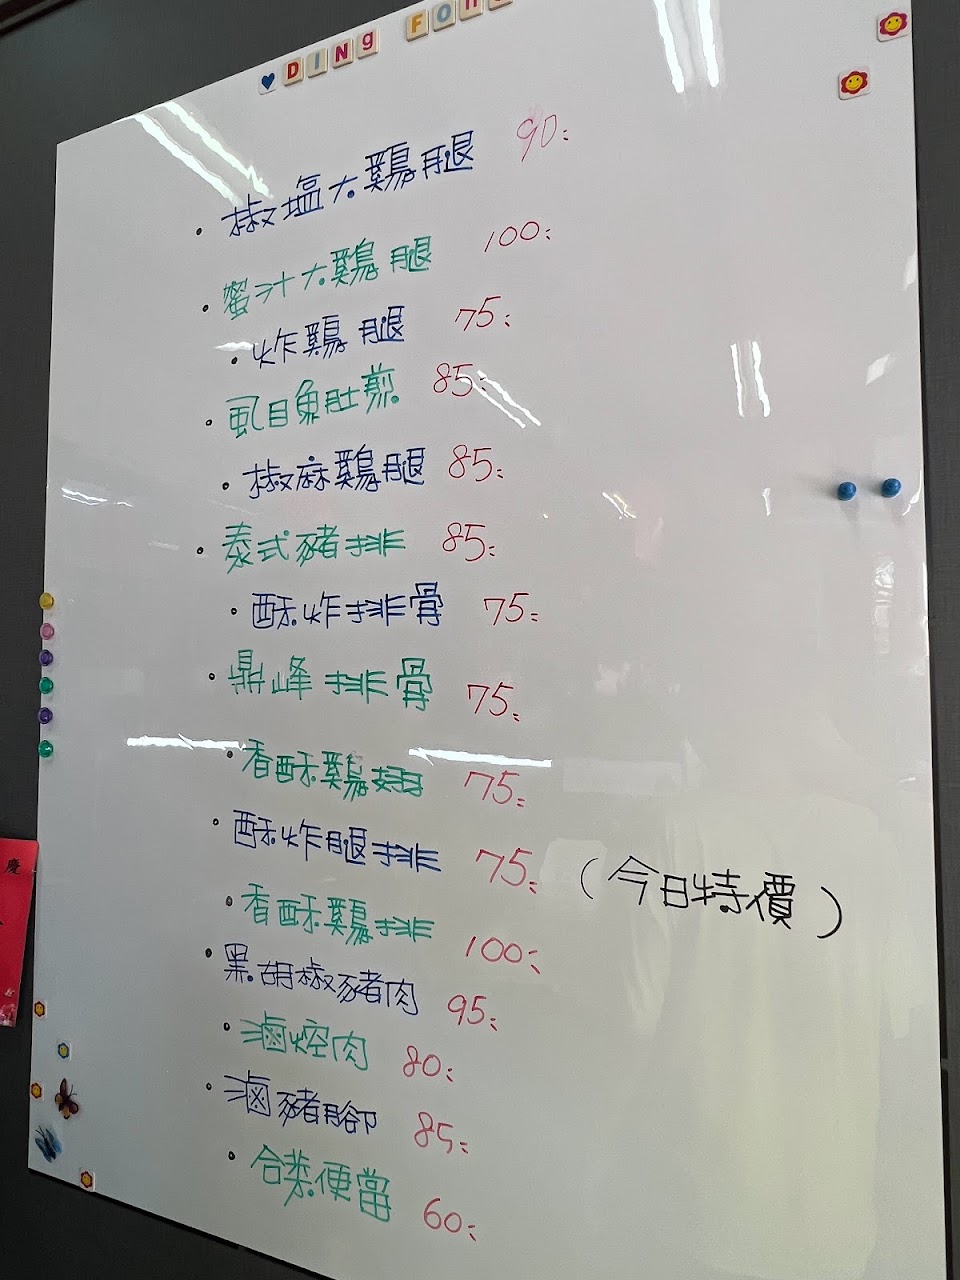 DINg FON
椒塩大鷄腿 90:
蜜汁大鷄腿 100:
炸鷄腿 75:
虱目魚肚煎 85:
椒麻鷄腿 85:
泰式豬排 85:
酥炸排骨 75:
鼎峰排骨 75:
香酥鷄翅 75:
酥炸腿排 75: (今日特價)
香酥鷄排 100:
黑胡椒豬肉 95:
滷焢肉 80:
滷豬腳 85:
合菜便當 60:
慶